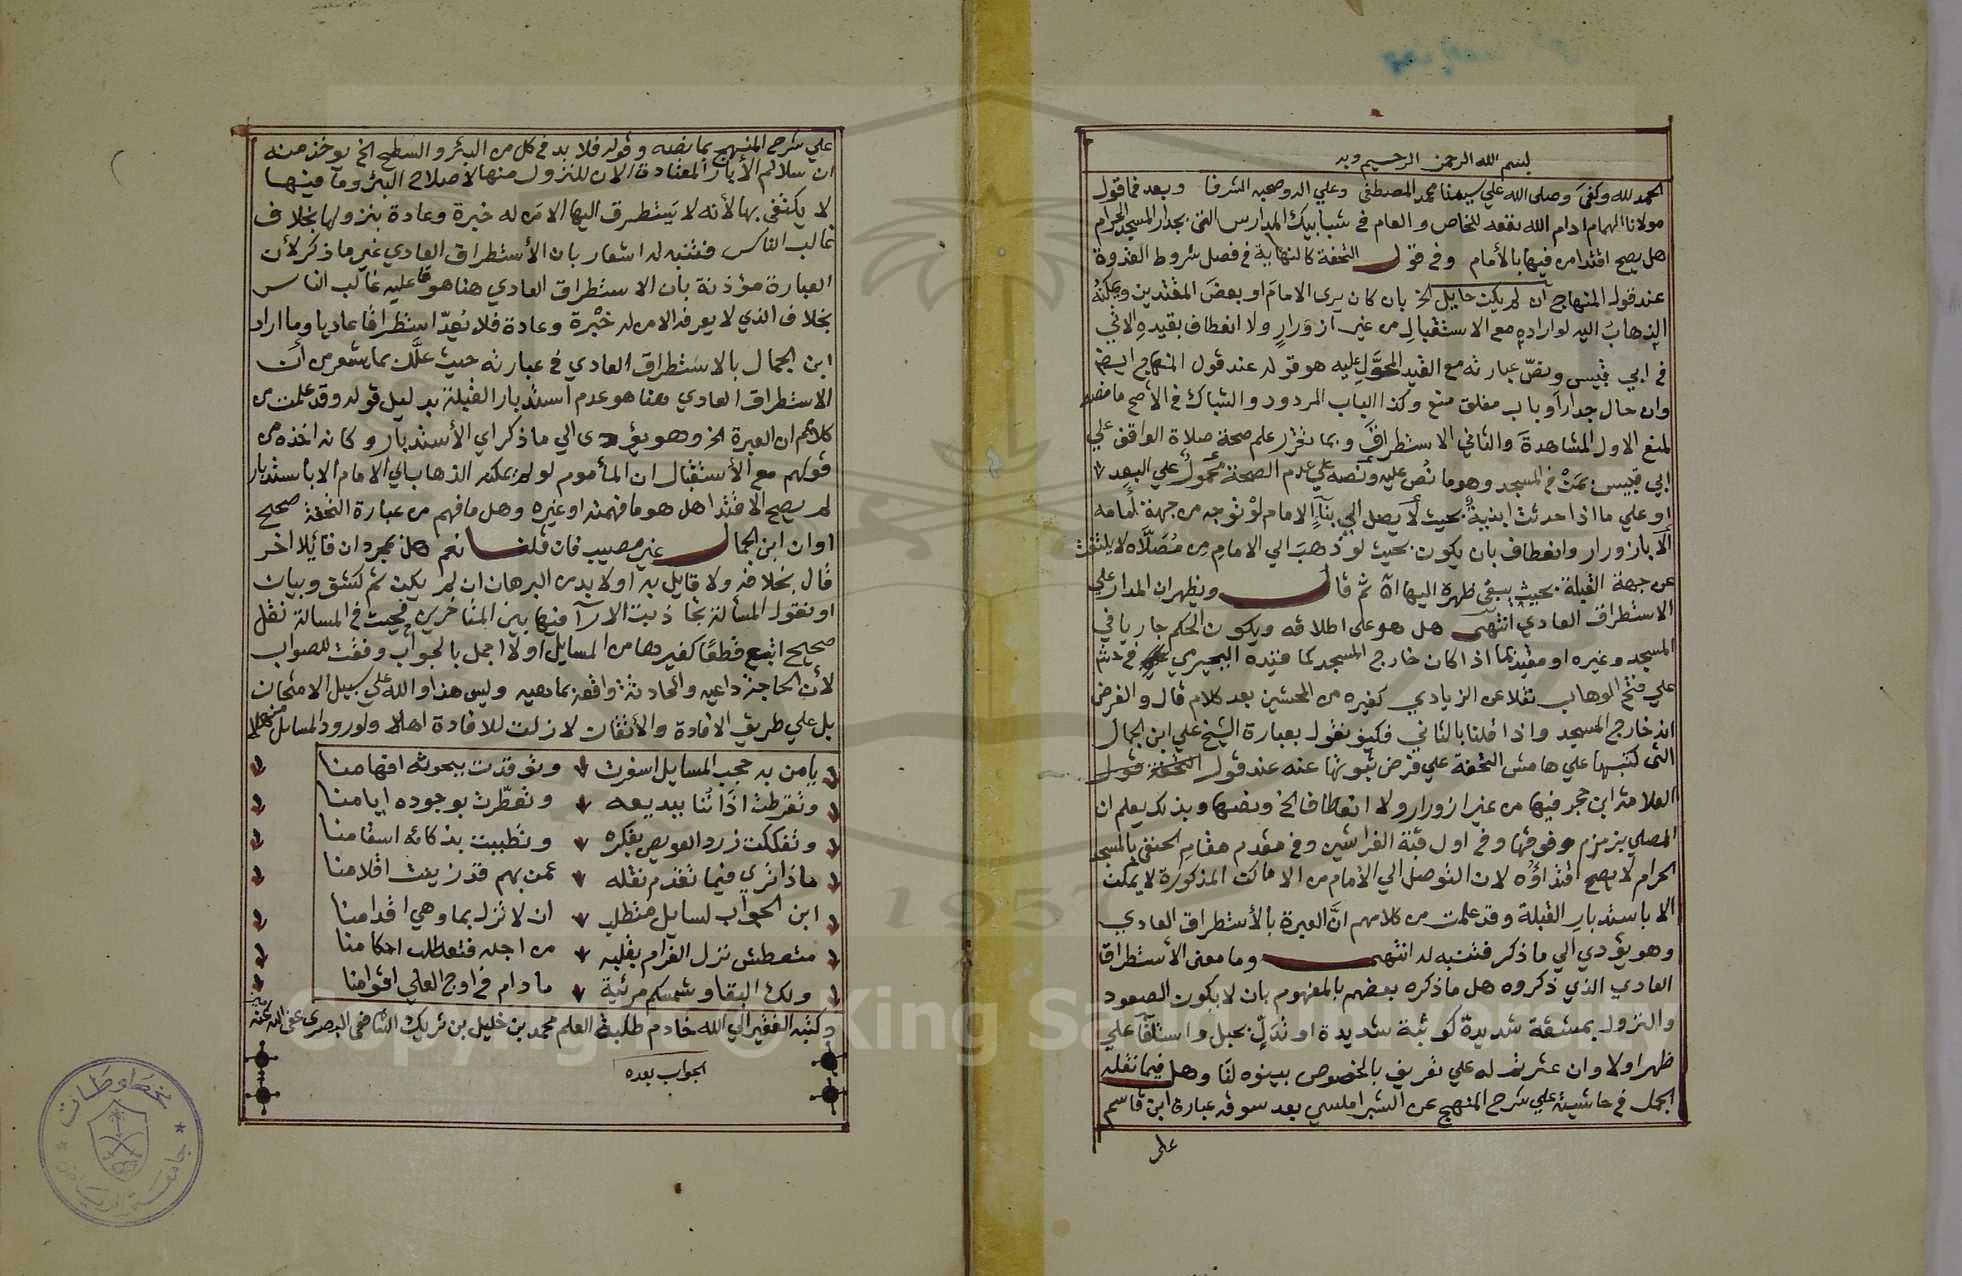 بسم الله الرحمن الرحيم وبه
الحمد لله وكفى وصلى الله على سيدنا محمد المصطفى وعلي اله وصحبه الشرفا وبعد فما قول
مولانا الهمام ادام الله بنفعه للخاص والعام في شبابيك المدارس التي بجدار المسجد الحرام
هل يصح اقتدا من فيها بالأمام وفي قول التحفة كالنهاية في فصل شروط القدوة
عند قول المنهاج ان لم يكن حايل الخ بان كان يرى الامام او بعض المقتدين ويمكنه
الذهاب اليه لو اراده مع الاستقبال من غير ازورار ولا انعطاف بقيده الاتي
في ابي قبيس ونص عبارته مع القيد المحول عليه هو قوله عند قول المنهاج ايضا
وان حال جدار او باب مغلق منع وكذا الباب المردود والشباك في الأصح ما نصه
لمنع الاول المشاهدة والثاني الاستطراق وبما تقرر علم صحة صلاة الواقف علي
ابي قبيس بمن في المسجد وهو ما نص عليه ونصه علي عدم الصحة محمول علي البعد
او علي ما اذا حدثت ابنية بحيث لا يصل الي بناء الامام لو توجه من جهة أمامه
الا بازورار وانعطاف بان يكون بحيث لو ذهب الي الامام من مصلاه لا يلتفت
عن جهة القبلة بحيث يبقى ظهره اليها اه ثم قال ويظهر ان المدار علي
الاستطراق العادي انتهى هل هو على اطلاقه ويكون الحكم جاريا في
المسجد وغيره او مقيد بما اذا كان خارج المسجد كما قيده البجيرمي في
علي فتح الوهاب نقلا عن الزيادي كغيره من المحشين بعد كلام قال والفرض
انه خارج المسجد واذا قلنا بالثاني فكيف نقول بعبارة الشيخ علي ابن الجمال
التي كتبها علي هامش التحفة علي فرض ثبوتها عنه عند قول التحفة قول
العلامة ابن حجر فيها من غير ازورار ولا انعطاف الخ ونصها وبذلك يعلم ان
المصلي بزمزم وفوقها وفي اول قبة الفراشين وفي مقدم مقام الحنفي بالمسجد
الحرام لا يصح اقتداؤه لان التوصل الي الأمام من الاماكن المذكورة لا يمكن
الا باستدبار القبلة وقد علمت من كلامهم ان العبرة بالأستطراق العادي
وهو يؤدي الي ما ذكر فتنبه له انتهى وما معنى الأستطراق
العادي الذي ذكروه هل ما ذكره بعضهم بالمفهوم بان لا يكون الصعود
والنزول بمشقة شديدة كوثبة شديدة او تدل بحبل واستلقا علي
ظهر اولا وان عثرتم له علي تعريف بالخصوص بينوه لنا وهل فيما نقله
الجمل في حاشيته علي شرح المنهج عن الشبراملسي بعد سوقه عبارة ابن قاسم
علي
علي شرح المنهج بما نصه وقوله فلا بد في كل من البئر والسطح الخ يوخذ منه
ان سلالم الأبار المعتادة الان للنزول منها لاصلاح البئر وما فيها
لا يكتفى بها لأنه لا يستطرق اليها الا من له خبرة وعادة بنزولها بخلاف
غالب الناس فتنبه له اشعار بان الأستطراق العادي غير ما ذكر لأن
العبارة مؤذنة بان الاستطراق العادي هنا هو ما عليه غالب الناس
بخلاف الذي لا يعرفه الا من له خبرة وعادة فلا يعد استطراقا عاديا وما اراد
ابن الجمال بالاستطراق العادي في عبارته حيث علل بما يشعر من أن
الاستطراق العادي هنا هو عدم استدبار القبلة بدليل قوله وقد علمت من
كلامهم ان العبرة الخ وهو يؤدي الي ما ذكر اي الأستدبار وكانه اخذه من
قولهم مع الأستقبال ان المأموم لو لم يمكنه الذهاب الي الامام الا باستدبار
لم يصح الاقتدا هل هو ما فهمته او غيره وهل ما فهم من عبارة التحفة صحيح
اوان ابن الجمال غير مصيب فان قلنا نعم هل بمجرد ان قائلا اخر
قال بخلافه ولا قايل به او لا بد من البرهان ان لم يكن ثم كشف وبيان
او نقول المسألة تجاذبت الارآ فيها بين المتأخرين فحيث في المسالة نقل
صحيح اتبع قطعا كغيرها من المسايل اولا اجمل بالجواب وفقت للصواب
لأن الحاجة داعيه والحادثة واقعة بما هيه وليس هذا والله علي سبيل الامتحان
بل علي طريق الافادة والأتقان لا زلت للافادة اهلا ولورود المسايل منهلا
يا من به حجب المسايل اسفرت وتوقدت ببحوثه افهامنا
وتقرطت اذاننا ببديعه وتعطرت بوجوده ايامنا
وتفككت زرد العويص بفكره وتطببت بذكائه اسقامنا
ماذا تري فيما تقدم نقله عمن بهم قد زينت اقلامنا
ابن الجواب لسايل متطلب ان لا تزل بما وهي اقدامنا
متعطش نزل الغرام بقلبه من اجله فتعطلت احكامنا
ولك البقا وشمسكم مرئية ما دام في اوج العلي اقوامنا
وكتبه الفقير الي الله خادم طلبة العلم محمد بن خليل بن تريك الشافعي البصري عفي الله عنه
الجواب بعده
مخطوطات
جامعة الرياض
1957
Copyright © King Saud University